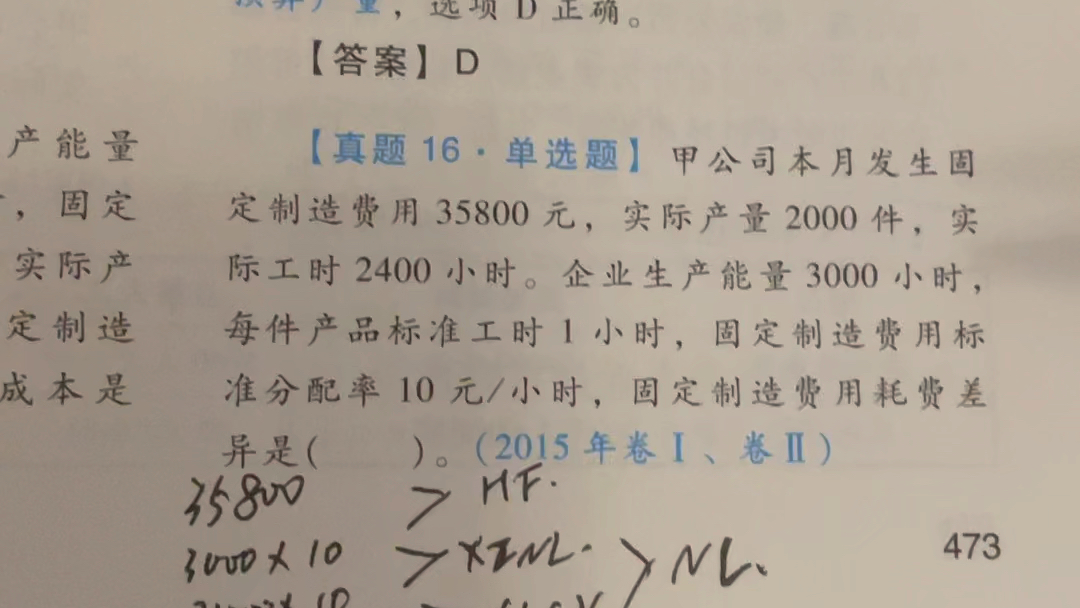 预算产量，选项 D 正确。
【答案】D
产能量
，固定
实际产
定制造
成本是
【真题 16·单选题】甲公司本月发生固
定制造费用 35800 元，实际产量 2000 件，实
际工时 2400 小时。企业生产能量 3000 小时，
每件产品标准工时 1 小时，固定制造费用标
准分配率 10 元/小时，固定制造费用耗费差
异是(　　)。(2015 年卷Ⅰ、卷Ⅱ)
35800 > HF.
3000×10 > XZNL. > NL.
473